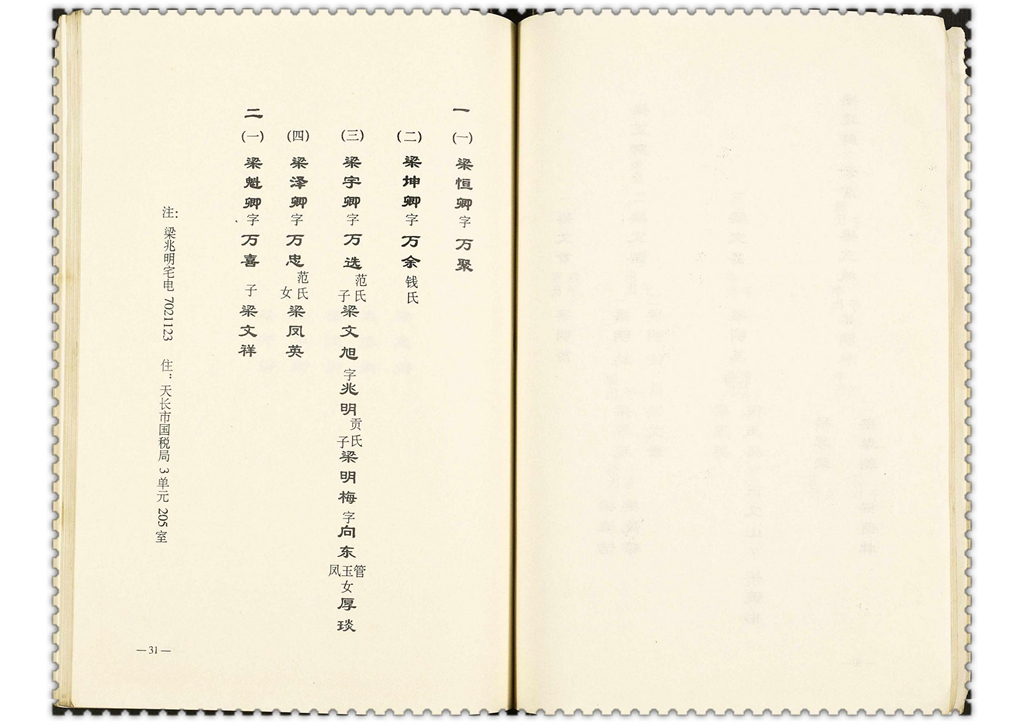 一
(一) 梁恒卿字万聚
(二) 梁坤卿字万余 钱氏
(三) 梁宇卿字万选 范氏 子梁文旭字兆明 贡氏 子梁明梅字向东 管玉凤 女厚琰
(四) 梁泽卿字万忠 范氏 女梁凤英
二
(一) 梁魁卿字万喜 子梁文祥
注: 梁兆明宅电 7021123 住: 天长市国税局 3 单元 205 室
— 31 —